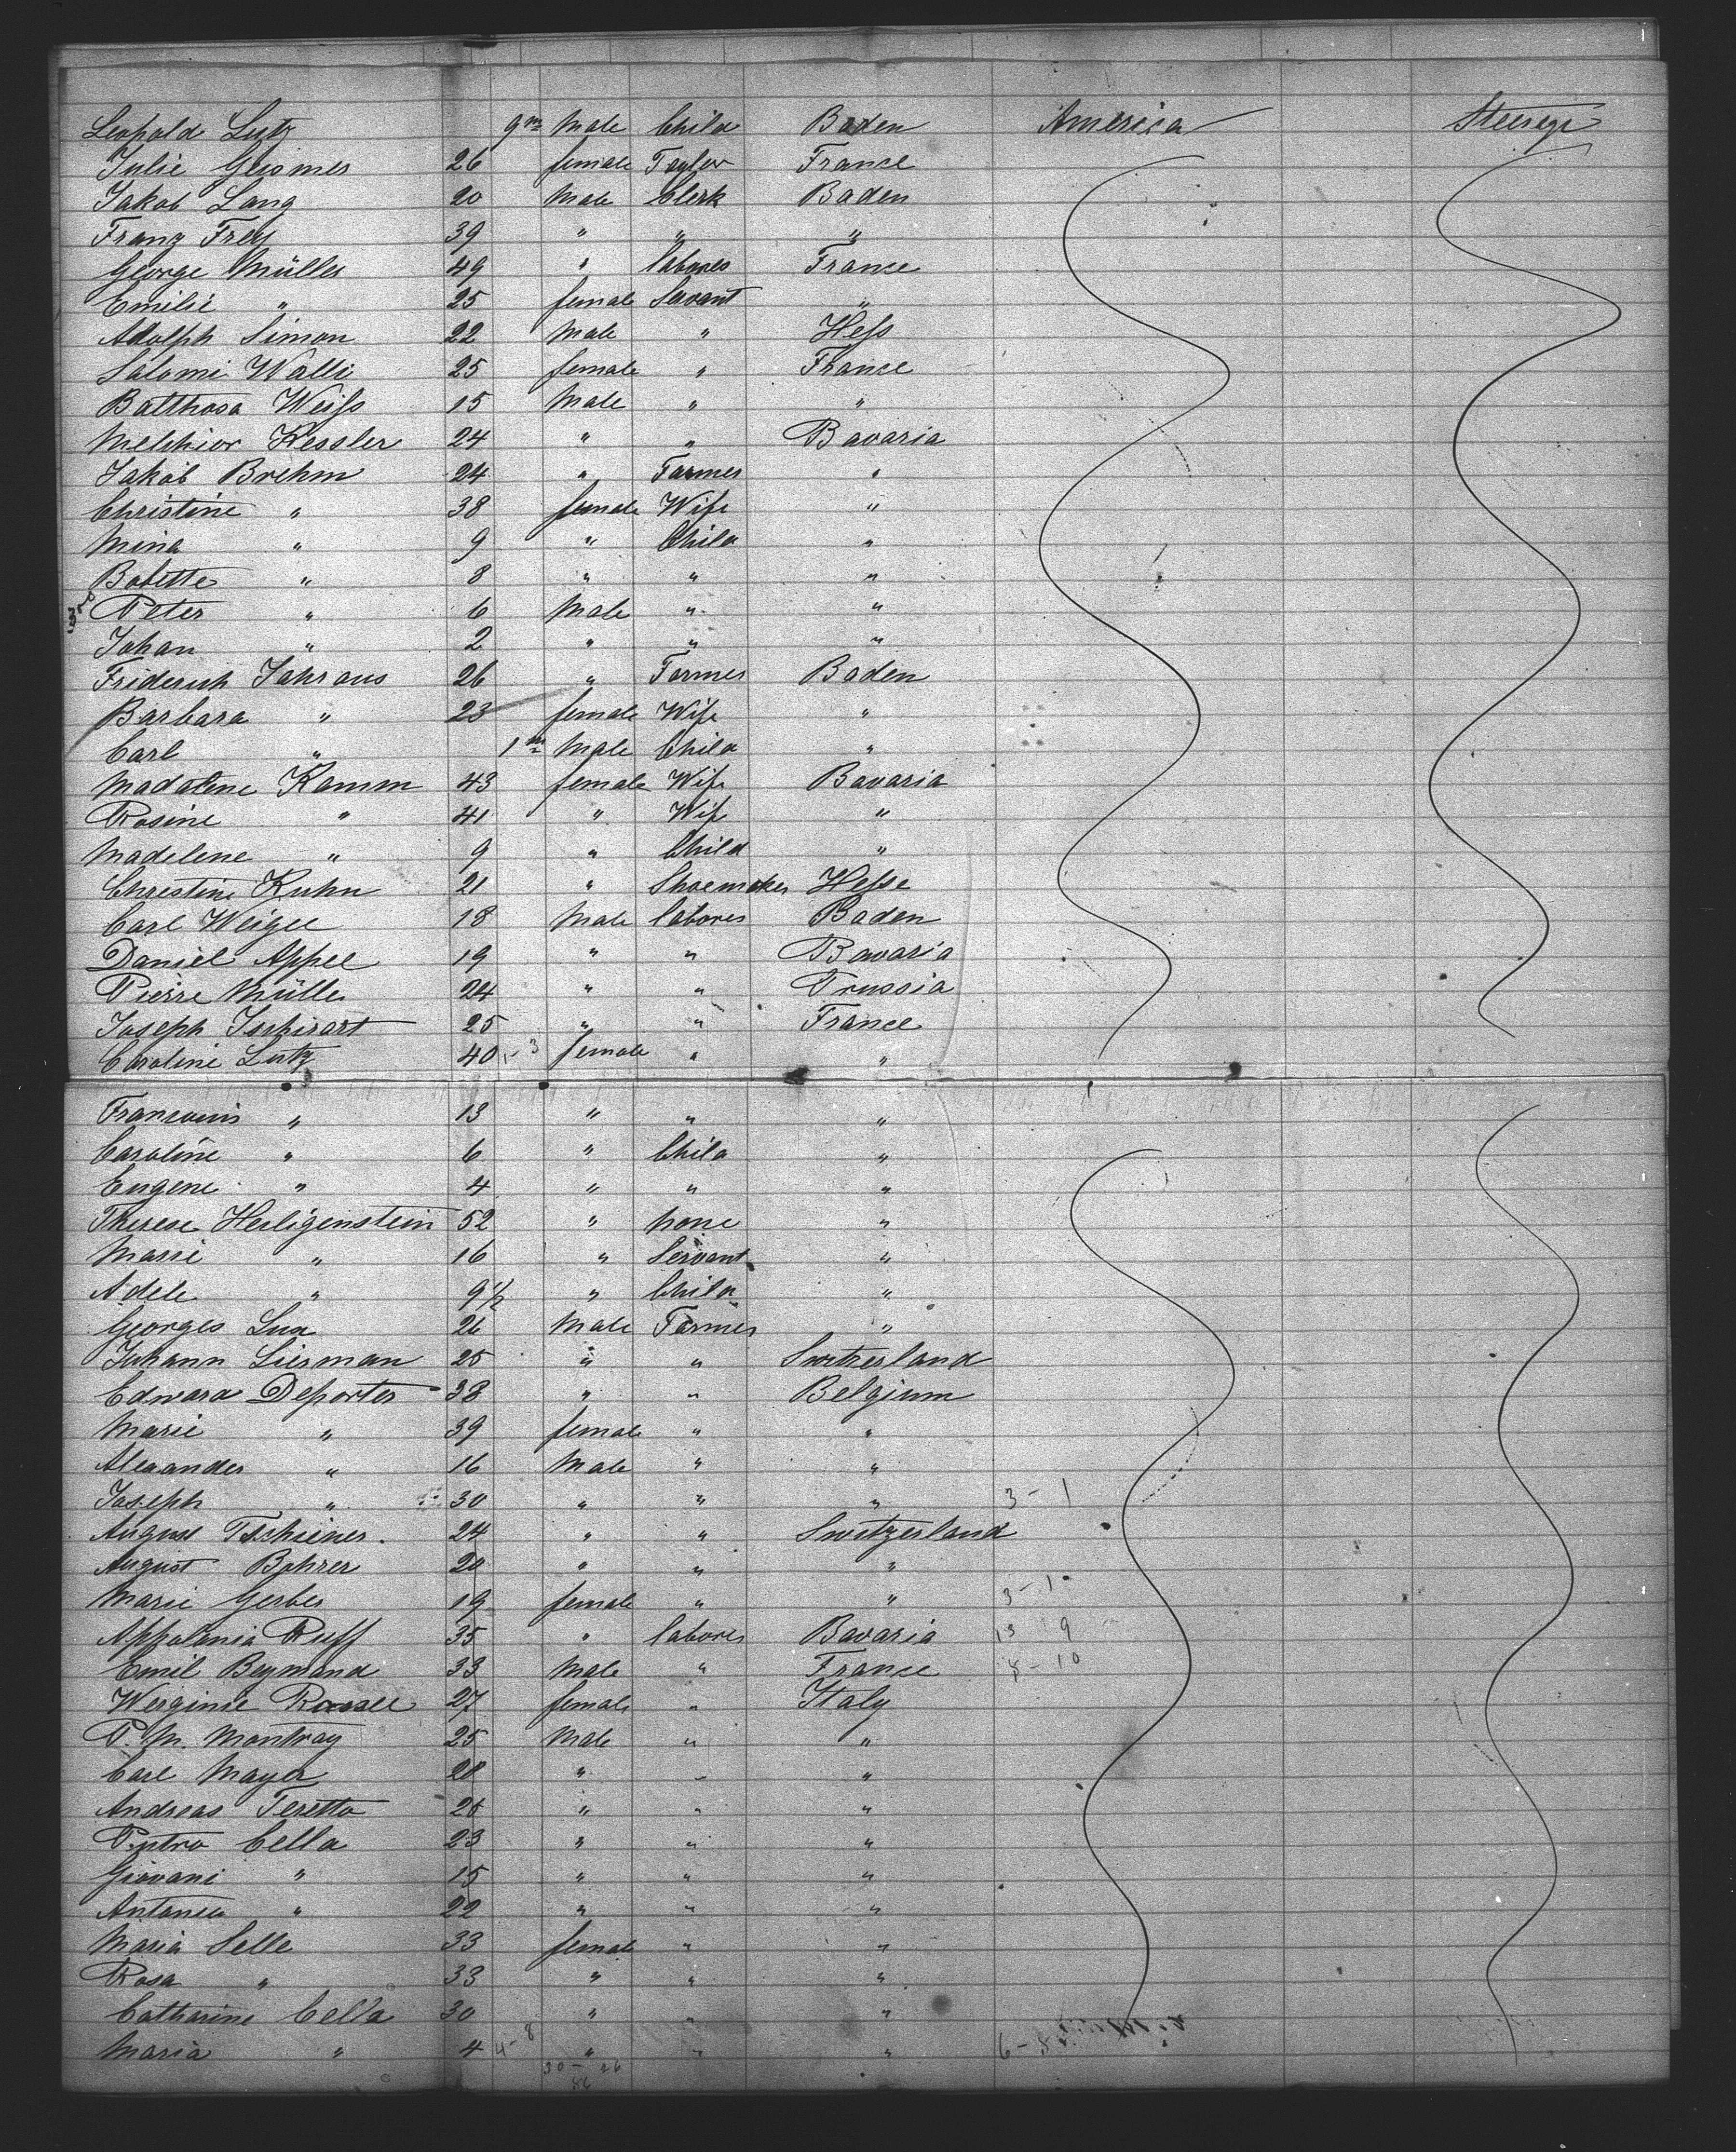 Leopold Lutz 9m Male Child Baden America Steerage
Julie Geismer 26 female Taylor France
Jakob Lang 20 Male Clerk Baden
Franz Frey 39 " " "
George Müller 49 " labores France
Emilie " 25 female Servant "
Adolph Simon 22 Male " Hess
Salomi Walli 25 female " France
Balthasa Weiss 15 Male " "
Melchior Kessler 24 " " Bavaria
Jakob Brehm 24 " Farmer "
Christine " 38 female Wife "
Mina " 9 " Child "
Babette " 8 " " "
Peter " 6 Male " "
Johan " 2 " " "
Friderich Jahraus 26 " Farmer Baden
Barbara " 23 female Wife "
Carl " 1m Male Child "
Madaline Kamm 43 female Wife Bavaria
Rosine " 41 " Wife "
Madelene " 9 " Child "
Christine Kuhn 21 " Shoemaker Hesse
Carl Weigel 18 Male labores Baden
Daniel Appel 19 " " Bavaria
Pierre Müller 24 " " Prussia
Joseph 25 " " France
Caroline Lutz 40 1-3 female " "
" 13 " " "
Caroline " 6 " Child "
Eugene " 4 " " "
Therese Heiligenstein 52 " none "
Marie " 16 " Servant "
Adele " 9 1/2 " Child "
Georges Lux 26 Male Farmer "
Johann Lierman 25 " " Switzerland
Edward Deporter 38 " " Belgium
Marie " 39 female " "
Alexander " 16 Male " "
Joseph " 30 " " " 3-1
August Tschiener 24 " " Switzerland
August Bohrer 20 " " "
Marie Gerber 19 female " " 3-10
Appolonia Ruff 35 " labores Bavaria 13 9
Emil Beymand 33 Male " France 8-10
Werginie 27 female " Italy
P. M. Montray 25 Male " "
Carl Mayer 28 " " "
Andreas Teretto 26 " " "
Pietro Cella 23 " " "
Giovani " 15 " " "
" 22 " " "
Maria Selle 33 female " "
Rosa " 33 " " "
Catharine Cella 30 " " "
Maria " 4 4-8 " " " 6-8
30-26